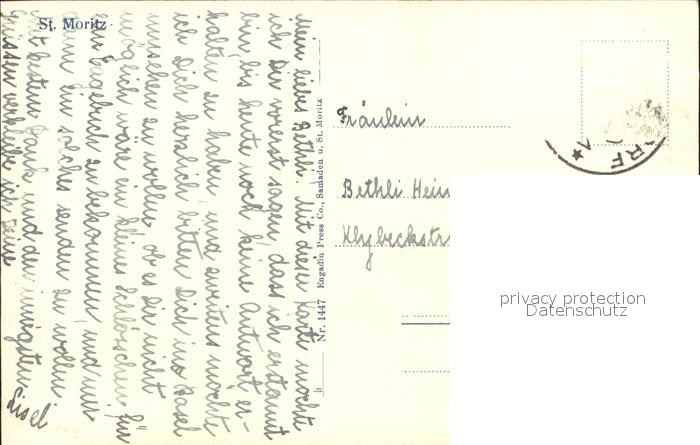 St. Moritz
Mein liebes Bethli! Mit dieser Karte möchte
ich Dir vorerst sagen, dass ich erstaunt
bin, bis heute noch keine Antwort er-
halten zu haben, und zweitens möchte
ich Dich herzlich bitten Dich in Basel
umsehen zu wollen, ob es Dir nicht
möglich wäre ein kleines Schlösschen für
ein Tagebuch zu bekommen, und mir
ein solches senden zu wollen
bestem Dank und den innigsten
verbleibe ich Deine
Lisel
Nr. 1447 Engadin Press Co., Samaden u. St. Moritz
Fräulein
Bethli Hein
Klybeckstr
RF
privacy protection
Datenschutz